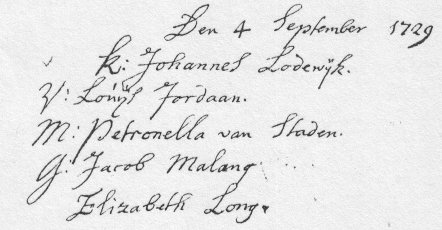 Den 4 September 1729
K: Johannes Lodewijk.
V: Louijs Jordaan.
M: Petronella van Staden.
G: Jacob Malang
Elizabeth Long.